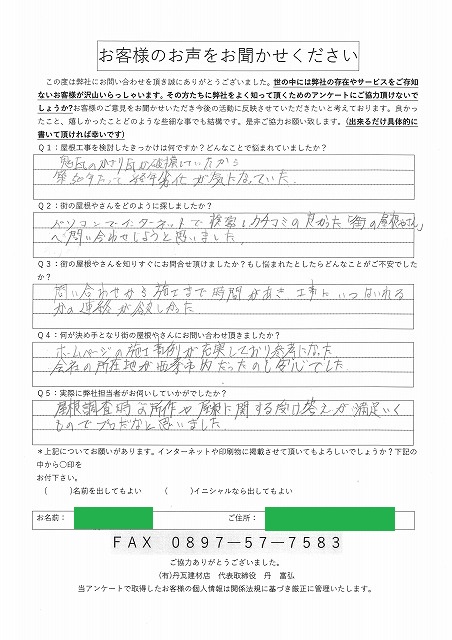 お客様のお声をお聞かせください
この度は弊社にお問い合わせを頂き誠にありがとうございました。世の中には弊社の存在やサービスをご存知
ないお客様が沢山いらっしゃいます。その方たちに弊社をよく知って頂くためのアンケートにご協力頂けないで
しょうか?お客様のご意見をお聞かせいただき今後の活動に反映させていただきたいと考えております。良かっ
たこと、嬉しかったことどのような些細な事でも結構です。是非ご協力お願い致します。(出来るだけ具体的に
書いて頂ければ幸いです)
Q1：屋根工事を検討したきっかけは何ですか？どんなことで悩まれていましたか？
瓦のかざり瓦が破損していたから
築年がたって 経年劣化が気になっていた.
Q2：街の屋根やさんをどのように探しましたか？
パソコンでインターネットで検索しクチコミの良かった「街の屋根やさん」
へ問い合わせしようと思いました。
Q3：街の屋根やさんを知りすぐにお問合せ頂けましたか？もし悩まれたとしたらどんなことがご不安でした
か？
問い合わせから施工まで時間があき 工事に いつはいれる
かの連絡が欲しかった
Q4：何が決め手となり街の屋根やさんにお問い合わせ頂きましたか？
ホームページの施工事例が充実しており参考になった
会社の所在地が西条市内だったのも安心でした
Q5：実際に弊社担当者がお伺いしていかがでしたか？
屋根調査時の所作や屋根に関する受け答えが満足いく
ものでプロだなと思いました.
＊上記についてお願いがあります。インターネットや印刷物に掲載させて頂いてもよろしいでしょうか？下記の
中から○印を
お付下さい。
（　　）名前を出してもよい　　（　　）イニシャルなら出してもよい
お名前：　　ご住所：
FAX 0897-57-7583
ご協力ありがとうございました。
(有)丹瓦建材店　代表取締役　丹　富弘
当アンケートで取得したお客様の個人情報は関係法規に基づき厳正に管理いたします。